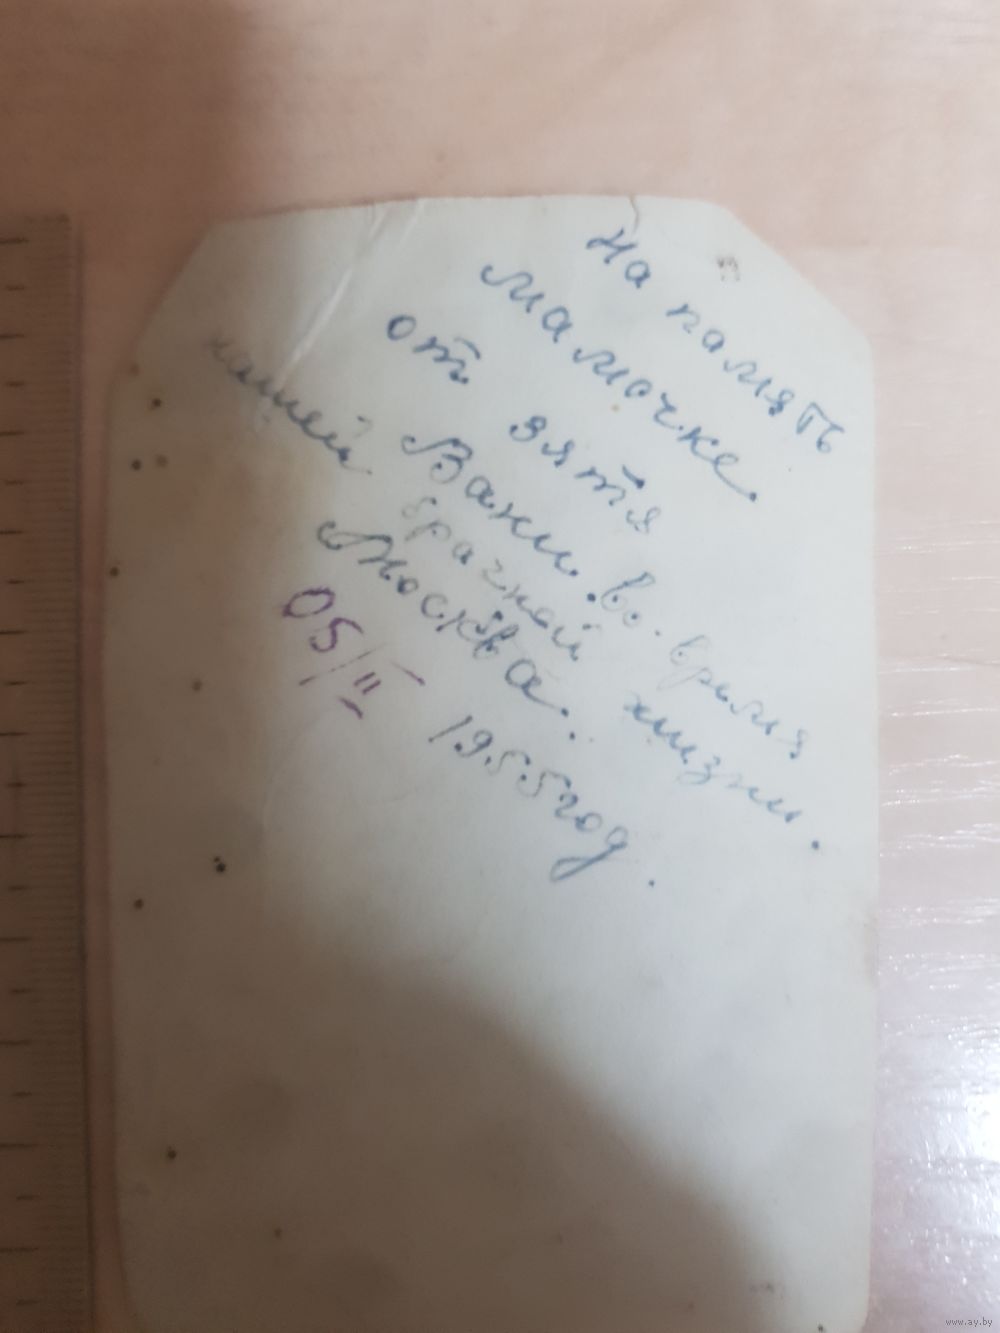 на память
мамочке.
от зятя
Вани. во. время
нашей брачной жизни.
Москва.
05/II 1955 год.
www.ay.by